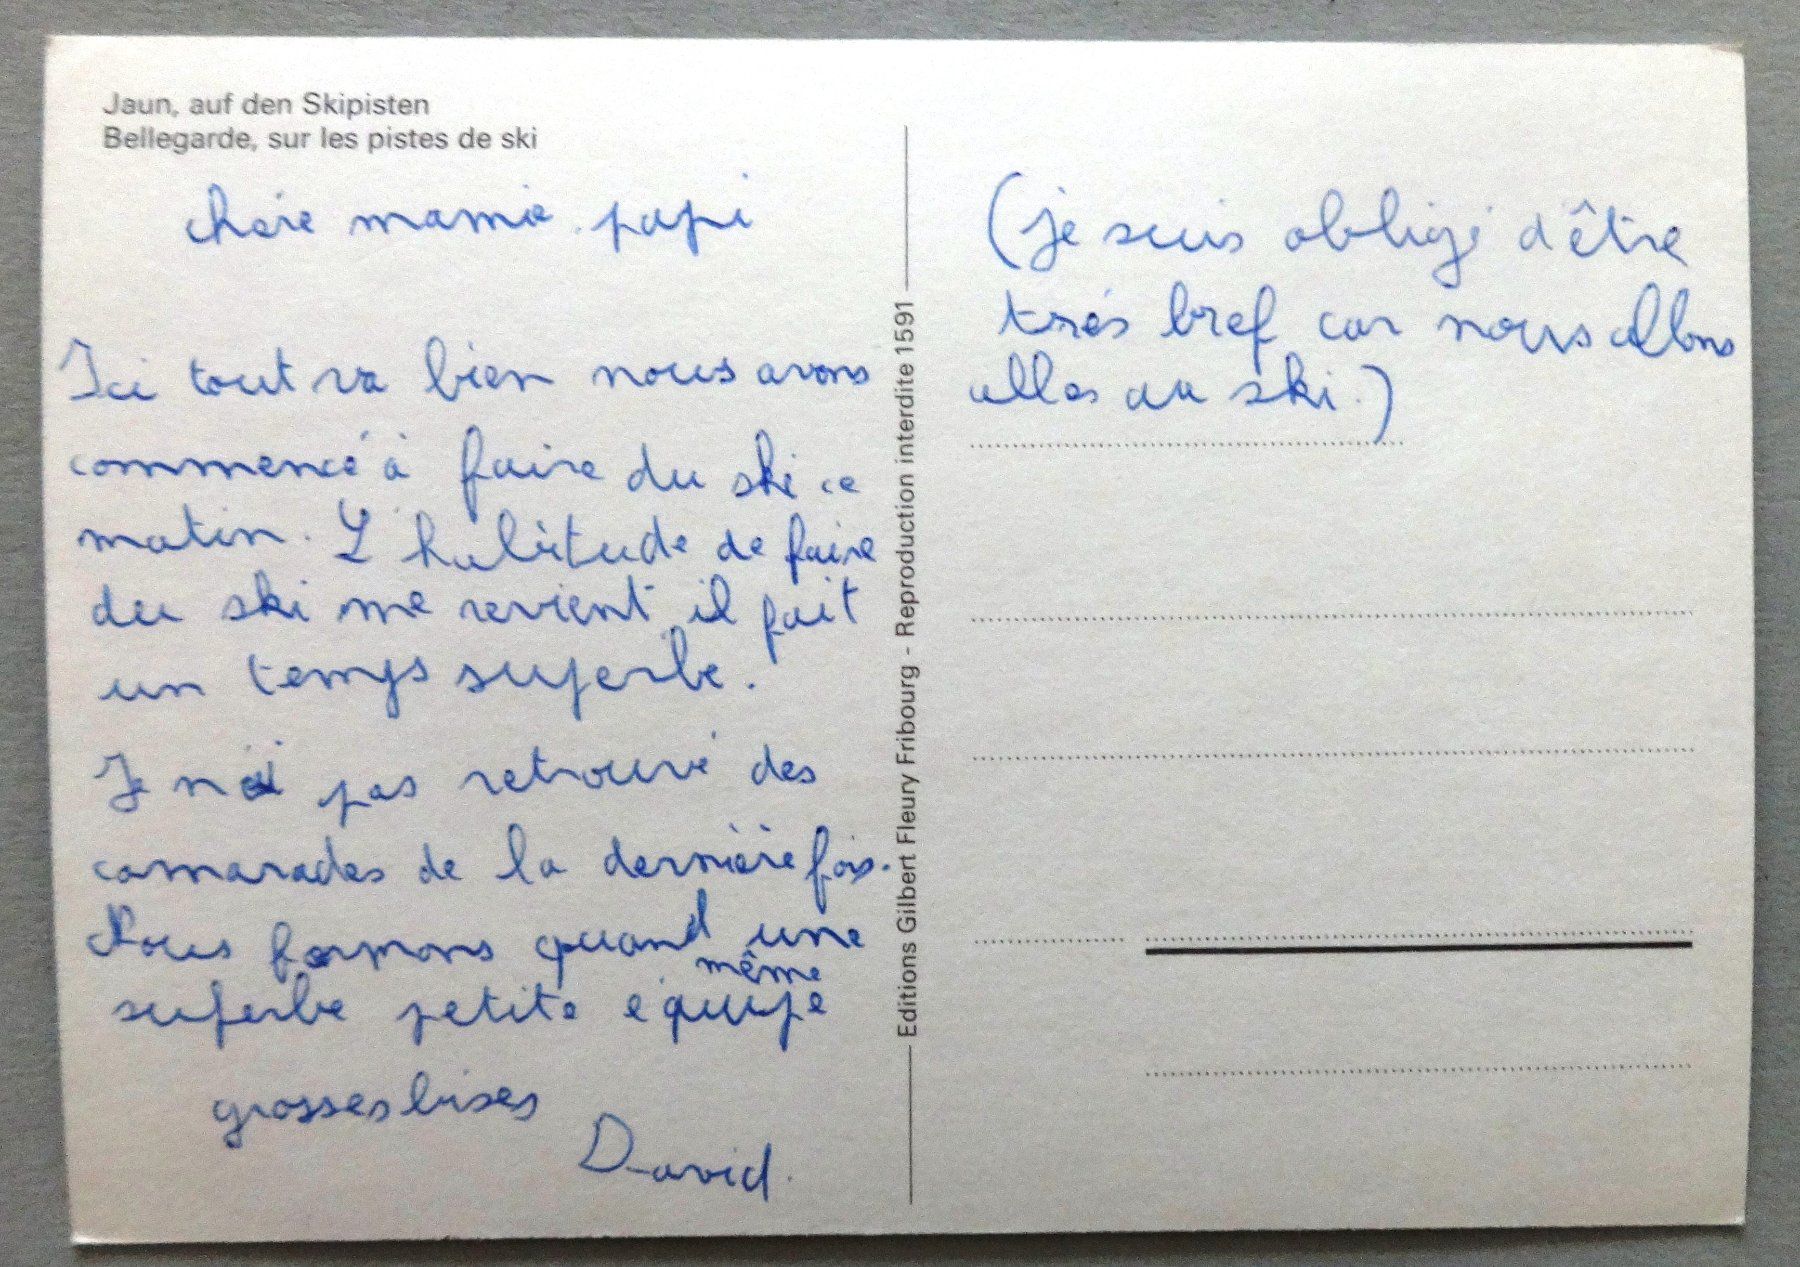 Jaun, auf den Skipisten
Bellegarde, sur les pistes de ski
chère mamie. papi
Ici tout va bien nous avons
commencé à faire du ski ce
matin. L'habitude de faire
du ski me revient il fait
un temps superbe.
Je n'ai pas retrouvé des
camarades de la dernière fois.
Nous formons quand une
même
superbe petite équipe
grosses bises
David.
Editions Gilbert Fleury Fribourg - Reproduction interdite 1591
(je suis obligé d'être
très bref car nous allons
aller au ski.)